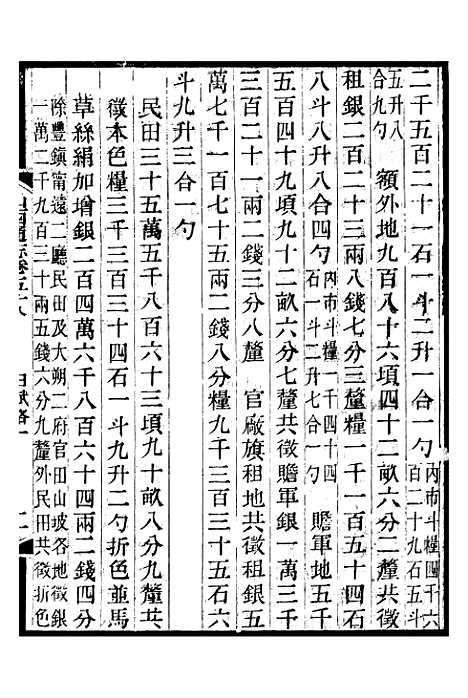 二千五百二十一石一斗二升一合一勺
內市斗糧四千六
百二十九石五斗
五升八
合九勺
額外地九百八十六項四十二畝六分二釐共徵
租銀二百二十三兩八錢七分三釐糧一千一百五十四石
八斗八升八合四勺
內市斗糧一千四十四
石一斗二升七合一勺
贍軍地五千
五百四十九項九十二畝六分七釐共徵贍軍銀一萬三千
三百二十一兩二錢三分八釐 官廠旗租地共徵租銀五
萬七千一百七十兩二錢八分糧九千三百三十五石六
斗九升三合一勺
民田三十五萬五千八百六十三項九十畝八分九釐共
徵本色糧三千三百三十四石一斗九升二勺折色並馬
草絲絹加增銀二百四萬六千八百六十四兩二錢四分
除豐鎮甯遠二廳民田及大朔二府官田山坡各地徵銀
一萬二千九百三十兩五錢六分九釐外民田共徵折色
山西通志卷五十八
田賦略一
二